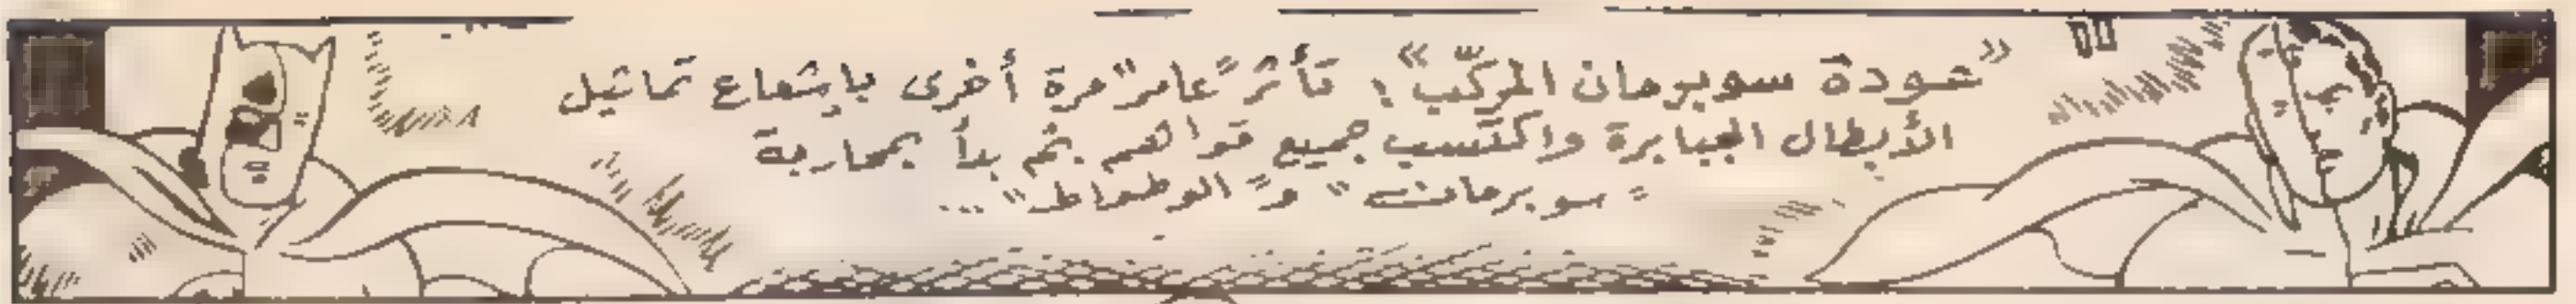 "عودة سوبرمان المركّب": تأثر "عامر" مرة أخرى بإشعاع تماثيل
الأبطال الجبابرة واكتسب جميع قواهم. ثم بدأ بمحاربة
"سوبرمان" و"الوطواط"...